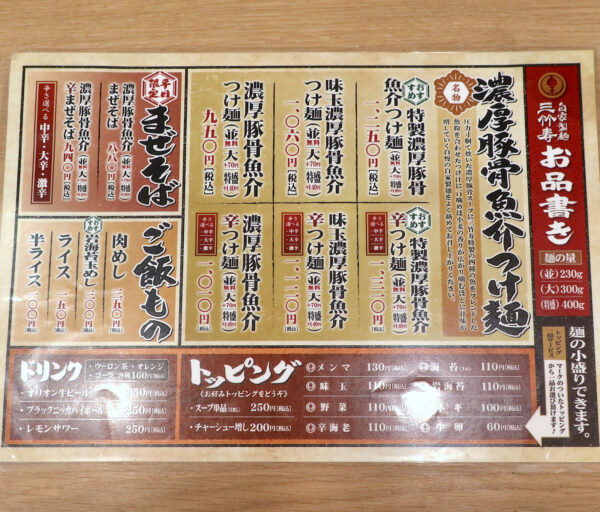 自家製麺
三竹寿
お品書き
麺の量
(並)230g
(大)300g
(特盛)400g
麺の小盛りできます。
トッピング一品サービス
マークのついたトッピングから、一品お選び頂けます!
名物
濃厚豚骨魚介つけ麺
おすすめ
特製濃厚豚骨
魚介つけ麺
一、二三五円(税込)
味玉濃厚豚骨魚介
つけ麺(並無料 大+70円 特盛+140円)
一、〇六〇円(税込)
濃厚豚骨魚介
つけ麺(並無料 大+70円 特盛+140円)
九五〇円(税込)
おすすめ
特製濃厚豚骨魚介
辛つけ麺
味玉濃厚豚骨魚介
辛つけ麺
濃厚豚骨魚介
辛つけ麺
辛さ選べる 中辛・大辛・激辛
平日限定
まぜそば
濃厚豚骨魚介
まぜそば
八八〇円(税込)
濃厚豚骨魚介
辛まぜそば
九四〇円(税込)
辛さ選べる 中辛・大辛・激辛
ご飯もの
肉めし
三五〇円(税込)
おすすめ
岩海苔玉めし
ライス
一五〇円
半ライス
一〇〇円
トッピング
(お好みトッピングをどうぞ)
・スープ単品 250円(税込)
・チャーシュー増し 200円(税込)
メンマ 130円(税込)
味玉 110円
野菜 110円
辛海老 110円
海苔 110円(税込)
岩海苔 110円(税込)
ネギ 100円(税込)
生卵 60円(税込)
ドリンク
・ウーロン茶・オレンジ
・コーラ 各種160円(税込)
・オリオン生ビール
・ブラックニッカハイボール
・レモンサワー 250円(税込)